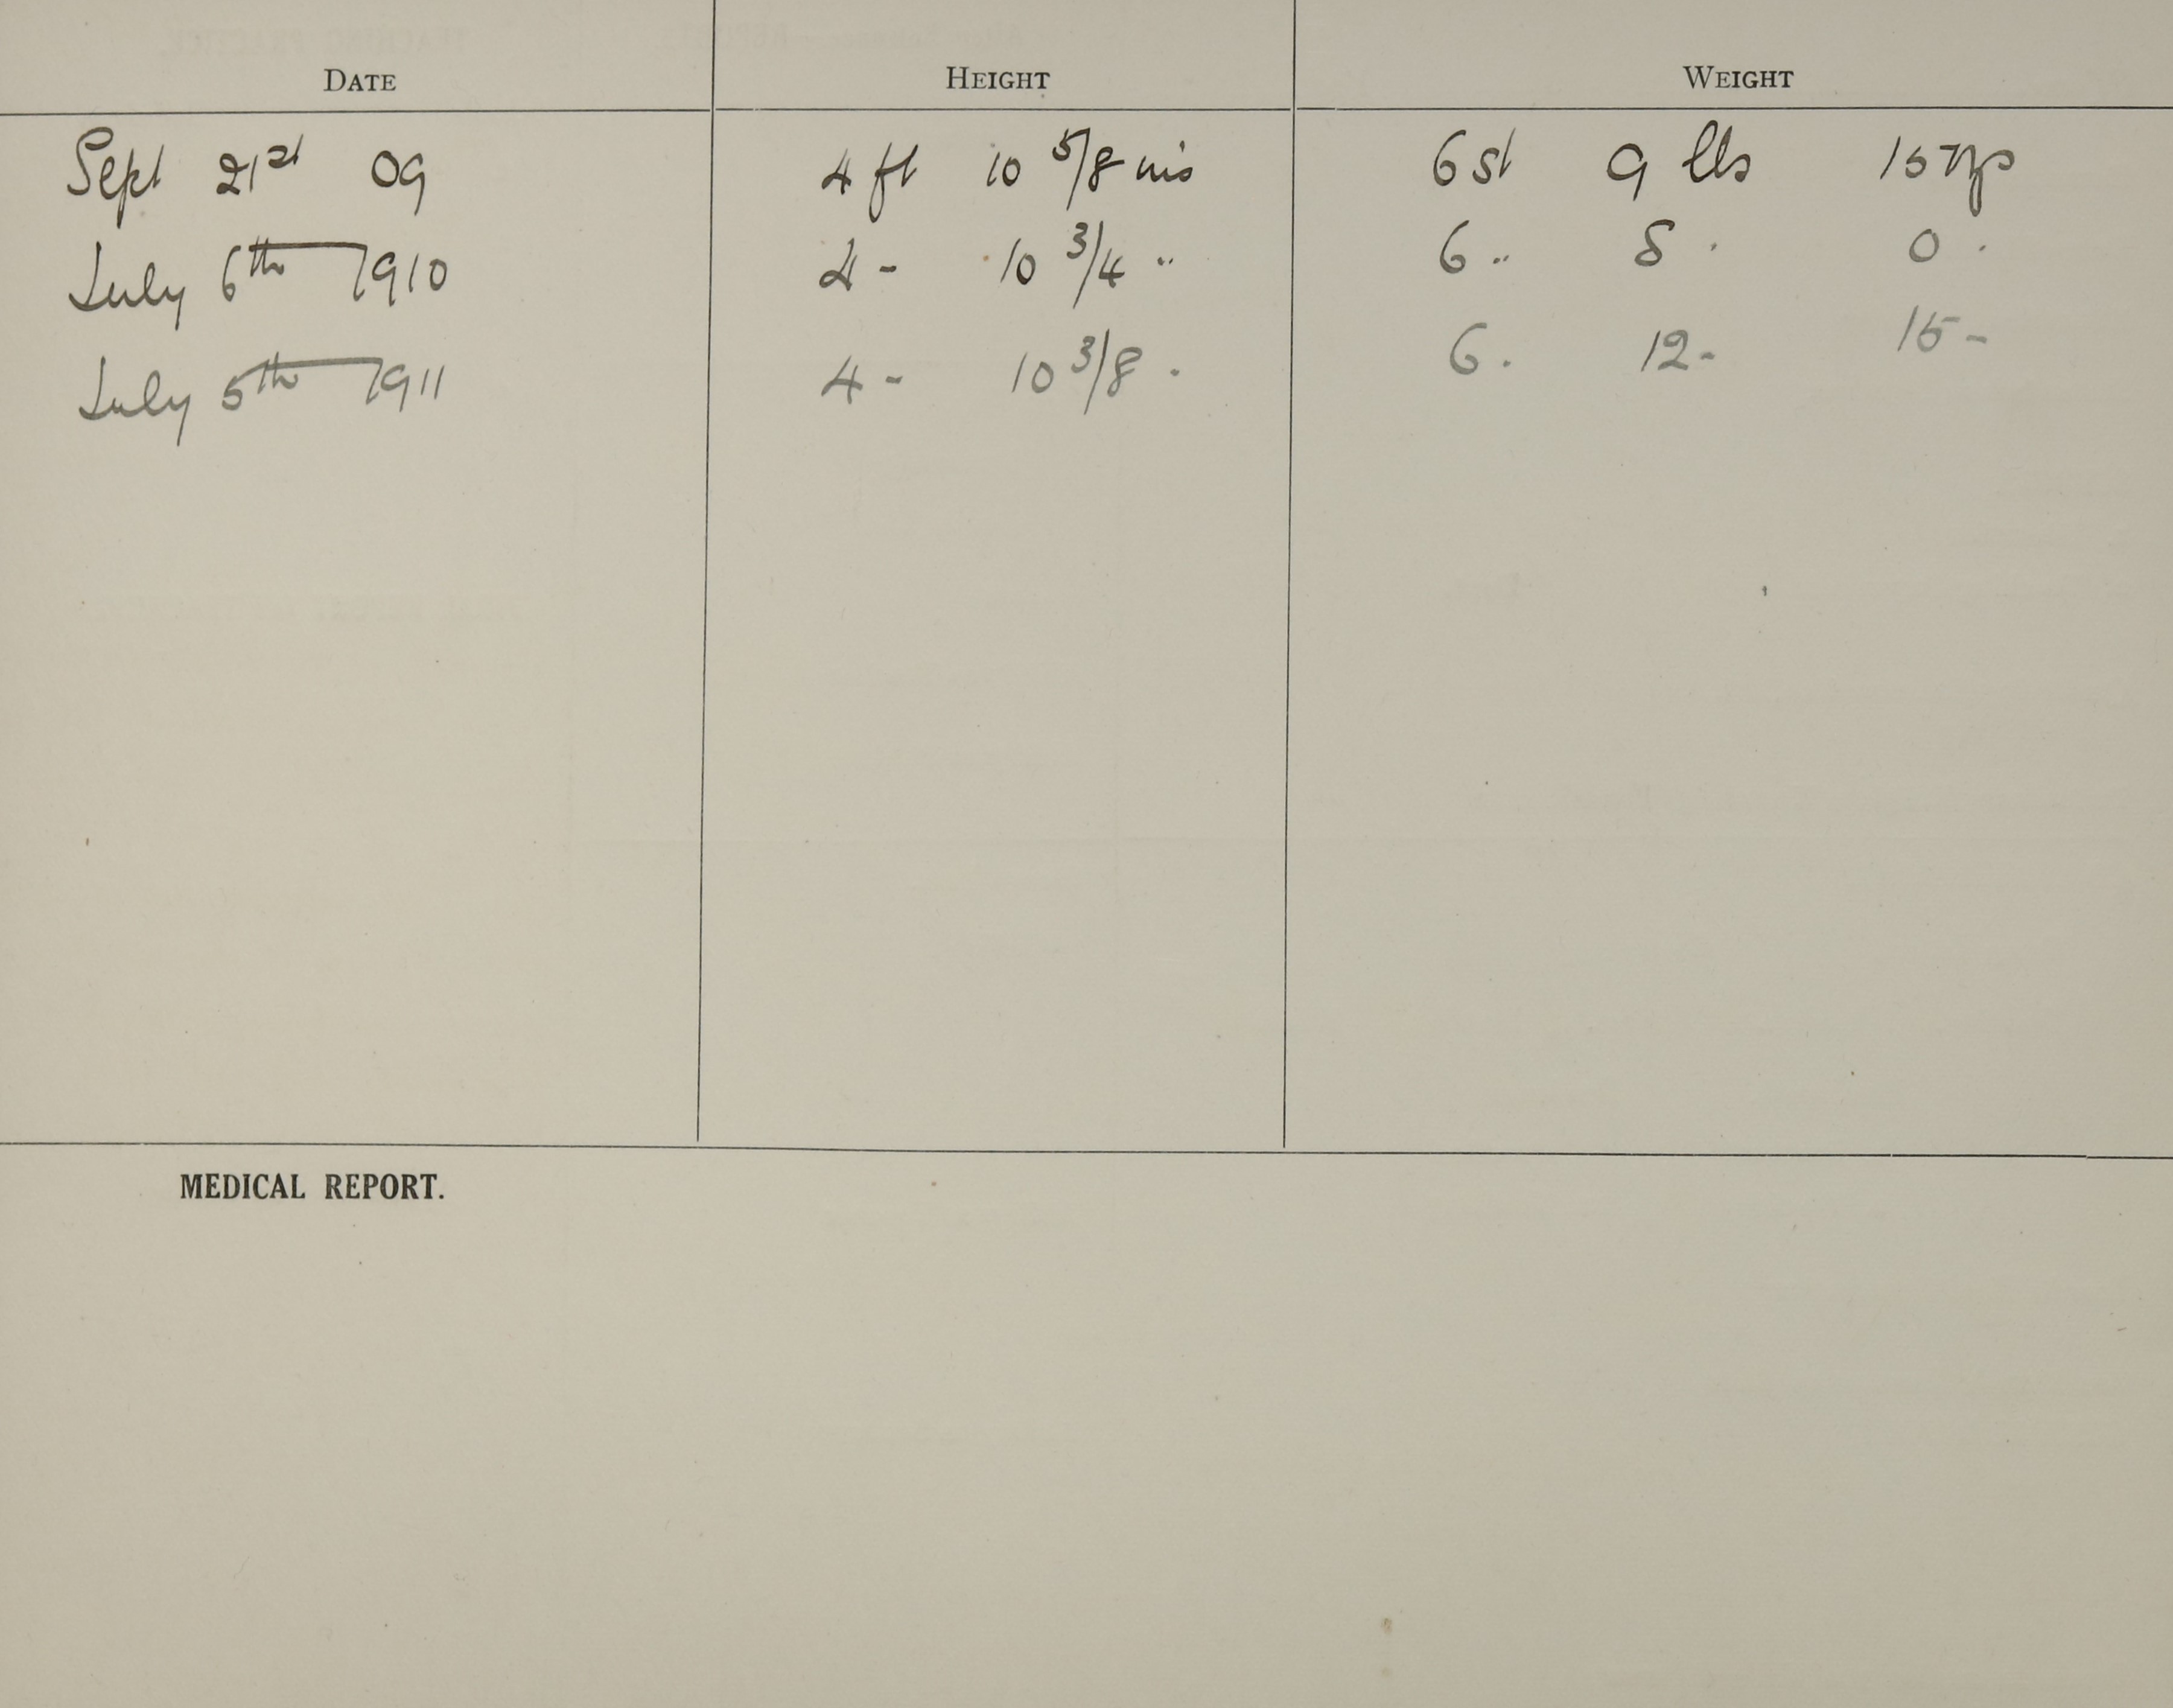 DATE HEIGHT WEIGHT
Sept 21st 09 4 ft 10 5/8 ins 6 st 9 lbs 15 ozs
July 6th 1910 4 - 10 3/4 " 6 " 8 . 0 .
July 5th 1911 4 - 10 3/8 . 6 . 12 - 15 -
MEDICAL REPORT.